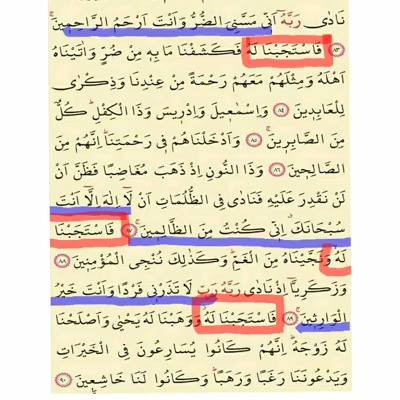 نَادٰى رَبَّهُٓ اَنّ۪ي مَسَّنِيَ الضُّرُّ وَاَنْتَ اَرْحَمُ الرَّاحِم۪ينَۚ
﴿٨٣﴾ فَاسْتَجَبْنَا لَهُ فَكَشَفْنَا مَا بِه۪ مِنْ ضُرٍّ وَاٰتَيْنَاهُ
اَهْلَهُ وَمِثْلَهُمْ مَعَهُمْ رَحْمَةً مِنْ عِنْدِنَا وَذِكْرٰى
لِلْعَابِد۪ينَ ﴿٨٤﴾ وَاِسْمٰع۪يلَ وَاِدْر۪يسَ وَذَا الْكِفْلِۜ كُلٌّ
مِنَ الصَّابِر۪ينَۚ ﴿٨٥﴾ وَاَدْخَلْنَاهُمْ ف۪ي رَحْمَتِنَاۜ اِنَّهُمْ مِنَ
الصَّالِح۪ينَ ﴿٨٦﴾ وَذَا النُّونِ اِذْ ذَهَبَ مُغَاضِبًا فَظَنَّ اَنْ
لَنْ نَقْدِرَ عَلَيْهِ فَنَادٰى فِي الظُّلُمَاتِ اَنْ لَٓا اِلٰهَ اِلَّٓا اَنْتَ
سُبْحَانَكَۗ اِنّ۪ي كُنْتُ مِنَ الظَّالِم۪ينَۚ ﴿٨٧﴾ فَاسْتَجَبْنَا
لَهُ وَنَجَّيْنَاهُ مِنَ الْغَمِّۜ وَكَذٰلِكَ نُنْجِي الْمُؤْمِن۪ينَ ﴿٨٨﴾
وَزَكَرِيَّٓا اِذْ نَادٰى رَبَّهُ رَبِّ لَا تَذَرْن۪ي فَرْدًا وَاَنْتَ خَيْرُ
الْوَارِث۪ينَۚ ﴿٨٩﴾ فَاسْتَجَبْنَا لَهُ وَوَهَبْنَا لَهُ يَحْيٰى وَاَصْلَحْنَا
لَهُ زَوْجَهُۜ اِنَّهُمْ كَانُوا يُسَارِعُونَ فِي الْخَيْرَاتِ
وَيَدْعُونَنَا رَغَبًا وَرَهَبًاۜ وَكَانُوا لَنَا خَاشِع۪ينَ ﴿٩٠﴾